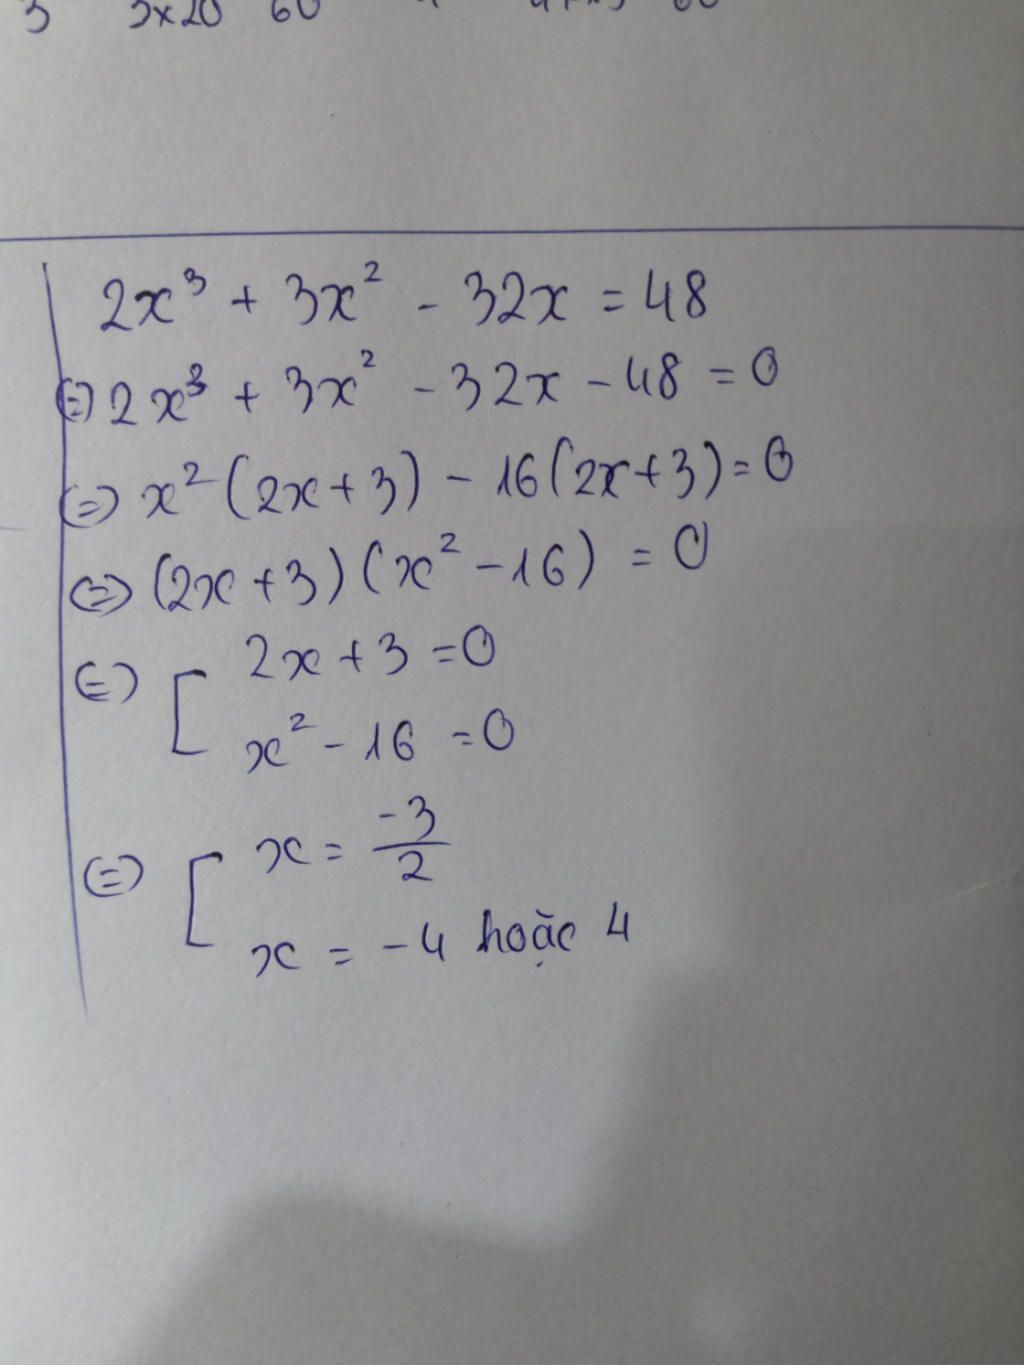 3 3x20 60
2x³ + 3x² - 32x = 48
(=) 2x³ + 3x² - 32x - 48 = 0
(=) x² (2x + 3) - 16 (2x + 3) = 0
(=) (2x + 3) (x² - 16) = 0
(=) [ 2x + 3 = 0
x² - 16 = 0
(=) [ x = -3/2
x = -4 hoặc 4